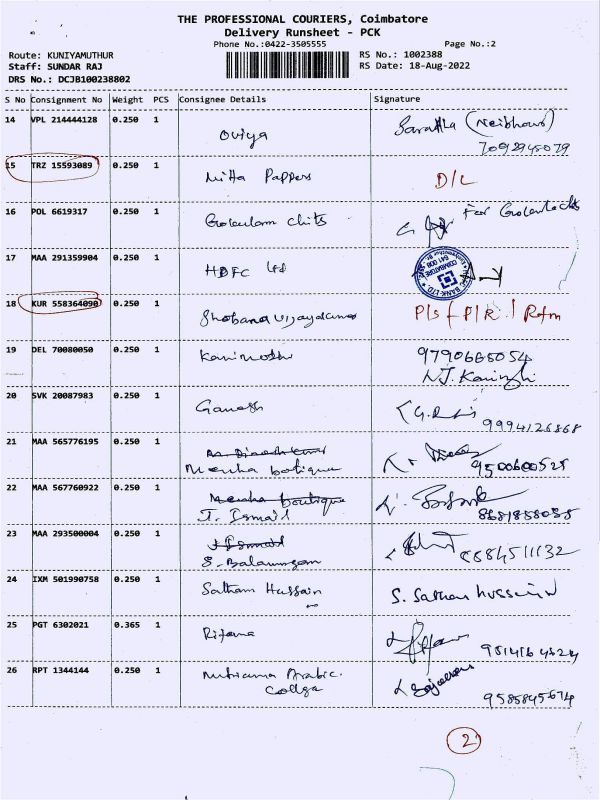 THE PROFESSIONAL COURIERS, Coimbatore
Delivery Runsheet - PCK
Phone No.:0422-3505555 Page No.:2
Route: KUNIYAMUTHUR RS No.: 1002388
Staff: SUNDAR RAJ RS Date: 18-Aug-2022
DRS No.: DCJB100238802
S No Consignment No Weight PCS Consignee Details Signature
14 VPL 214444128 0.250 1 Oviya
15 TRZ 15593089 0.250 1 Mitta Pappers D/L
16 POL 6619317 0.250 1 Gokulam Chits For
17 MAA 291359904 0.250 1 HDFC Ltd
BANK LTD. COIMBATORE 641 008
18 KUR 558364090 0.250 1
19 DEL 70080050 0.250 1 Kanimozhi 9790665054
20 SVK 20087983 0.250 1 Ganesh
9994126868
21 MAA 565776195 0.250 1
botique 9500600525
22 MAA 567760922 0.250 1 boutique
J. Ismail
23 MAA 293500004 0.250 1 Ismail
S. Balamurugan
24 IXM 501990758 0.250 1 Satham Hussain S. Satham hussain
25 PGT 6302021 0.365 1 Rifana
26 RPT 1344144 0.250 1 Arabic
Collga 9585845674
2